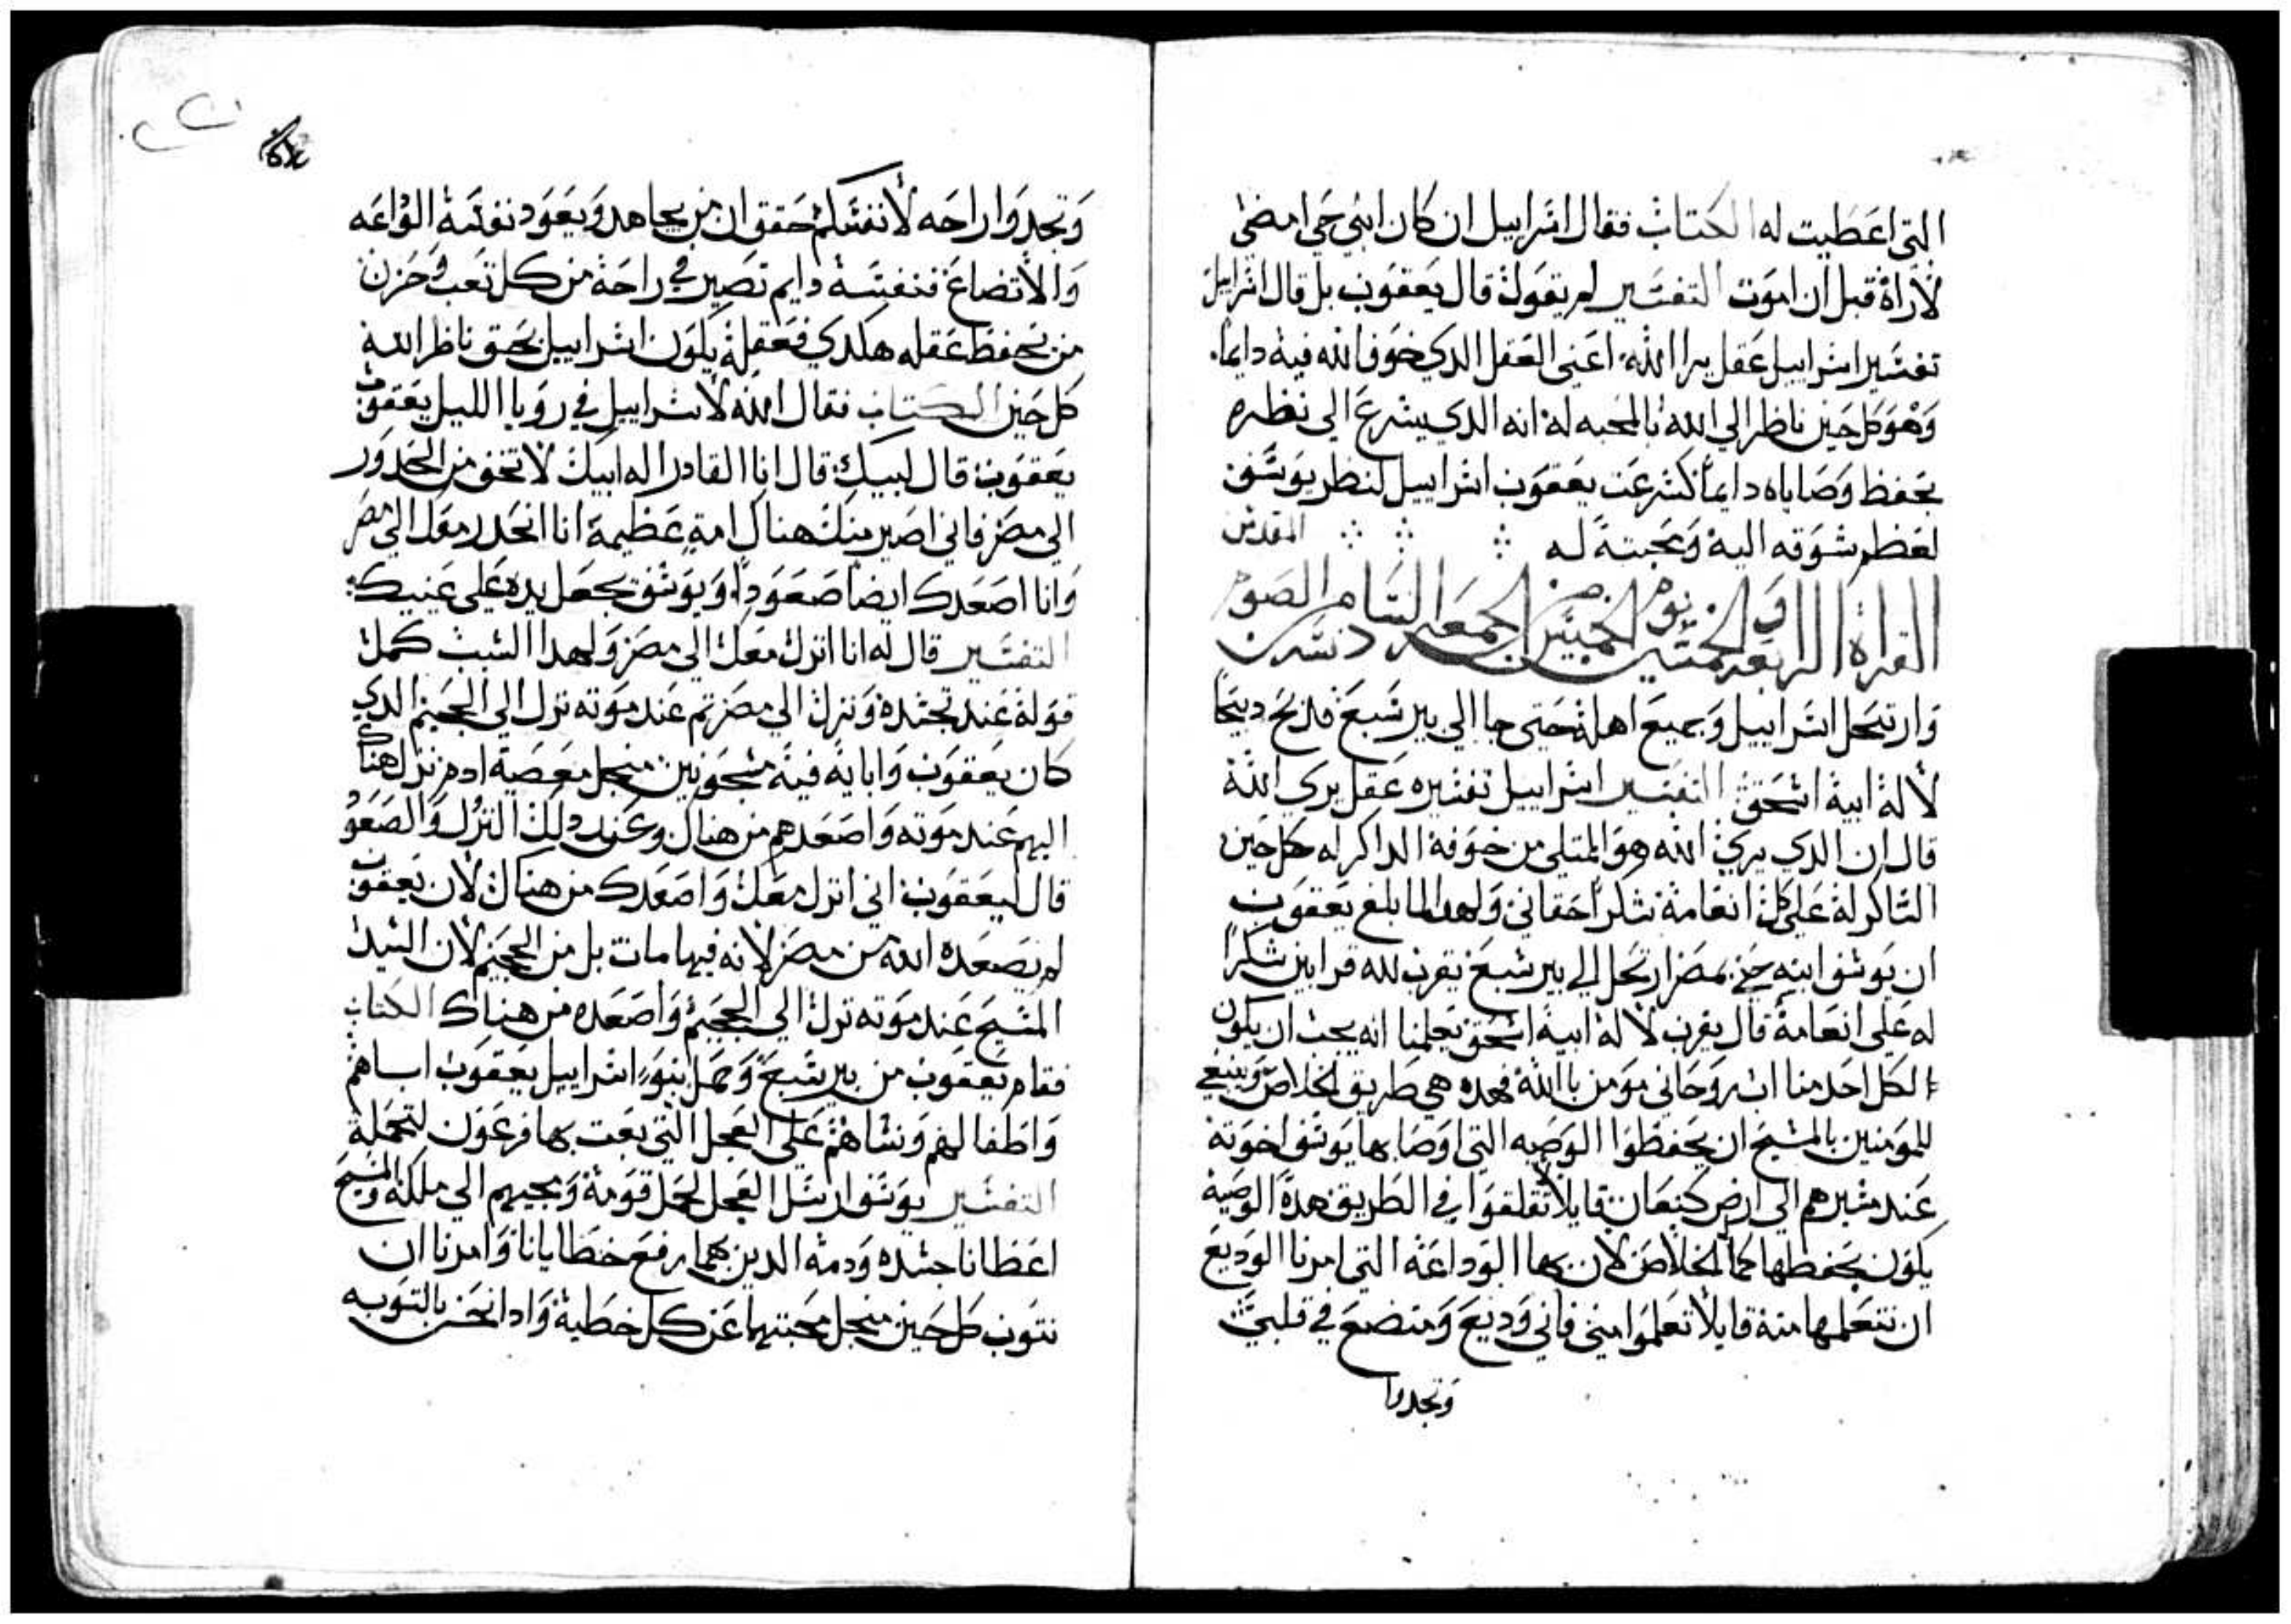 التى اعطيت له الكتاب فقال اسراييل ان كان ابنى حي امضى
لاراه قبل ان اموت التفسير لم يقول قال يعقوب بل قال اسراييل
تفسير اسراييل عقل يرا الله اعنى العقل الدي خوف الله فيه دايما.
وهو كل حين ناظر الي الله بالمحبه له انه الدي يسرع الى نظره
بحفظ وصاياه دايما كسرعت يعقوب اسراييل لنظر يوسف
لعظم شوقه اليه ومحبته له
المقدس
القراة الرابعه والخمسين يوم الخميس من الجمعه السادسه من الصوم
وارتحل اسراييل وجميع اهله حتى جا الى بير سبع فدبح دبيحا
لاله ابيه اسحق التفسير اسراييل تفسيره عقل يري الله
قال ان الدي يري الله هو الممتلى من خوفه الداكر له كل حين
الشاكر له على كل انعامه شكرا حقانى ولهدا لما بلغ يعقوب
ان يوسف ابنه حي بمصر ارتحل الى بير سبع يقرب لله قرابين شكرا
له على انعامه قال يقرب لاله ابيه اسحق يعلمنا انه يجب ان يكون
لكل احد منا اب روحانى مومن بالله فهده هي طريق الخلاص وينبغي
للمومنين بالمسيح ان يحفظوا الوصيه التى اوصا بها يوسف اخوته
عند مسيرهم الى ارض كنعان قايلا لا تقلقوا في الطريق هده الوصيه
يكون بحفظها كمال الخلاص لان بها الوداعه التى امرنا الوديع
ان نتعلمها منه قايلا تعلموا مني فاني وديع ومتضع في قلبي
وتجدوا
وتجدوا راحه لانفسكم حقق ان من يجاهد ويعود نفسه الوداعه
والاتضاع فنفسه دايم تصير في راحه من كل تعب وحزن
من يحفظ عقله هكدي فعقله يكون اسراييل بحق ناظر الله
كل حين الكتاب فقال الله لاسراييل في رويا الليل يعقوب
يعقوب قال لبيك قال انا القادر اله ابيك لا تخف من الحدور
الي مصر فاني اصير منك هناك امة عظيمة انا انحدر معك الي مصر
وانا اصعدك ايضا صعودا ويوسف يجعل يده على عينيك
التفسير قال له انا انزل معك الى مصر ولهدا السبب كمل
قوله عند تجسده ونزل الي مصر تم عند موته نزل الي الجحيم الدي
كان يعقوب وابايه فيه مسجونين منجل معصية ادم نزل هناك
اليهم عند موته واصعدهم من هناك وعند دلك النزل والصعود
قال ليعقوب اني انزل معك واصعدك من هناك لان يعقوب
لم يصعده الله من مصر لانه فيها مات بل من الجحيم لان السيد
المسيح عند موته نزل الي الجحيم واصعده من هناك الكتاب
فقام يعقوب من بير سبع وحمل بنو اسراييل يعقوب اباهم
واطفالهم ونساهم على العجل التي بعت بها فرعون لتحمله
التفسير يوسف ارسل العجل لحمل قومه ويجيبهم الي ملكه والمسيح
اعطانا جسده ودمه الدين بهما رفع خطايانا وامرنا ان
نتوب كل حين منجل محبتهما عن كل خطية وادا نحن بالتوبه